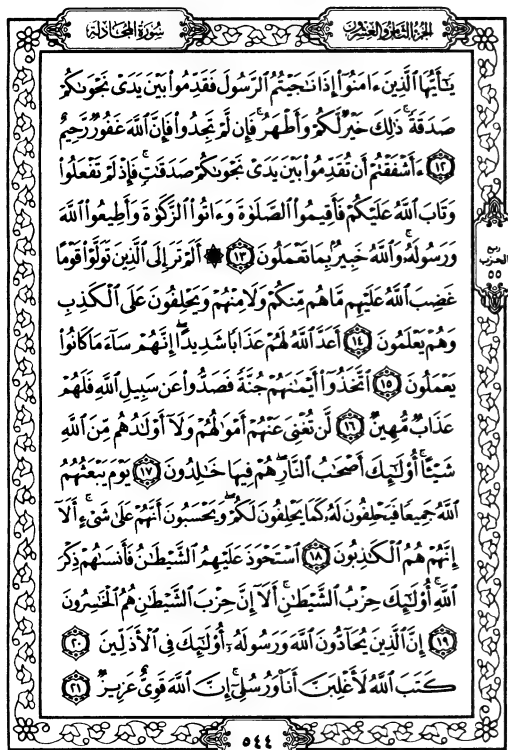 سُورَةُ المُجَادلة
الجُزءُ الثَّامِنُ وَالعِشْرُونَ
يَـٰٓأَيُّهَا ٱلَّذِينَ ءَامَنُوٓا۟ إِذَا نَـٰجَيْتُمُ ٱلرَّسُولَ فَقَدِّمُوا۟ بَيْنَ يَدَىْ نَجْوَىٰكُمْ
صَدَقَةً ۚ ذَٰلِكَ خَيْرٌ لَّكُمْ وَأَطْهَرُ ۚ فَإِن لَّمْ تَجِدُوا۟ فَإِنَّ ٱللَّهَ غَفُورٌ رَّحِيمٌ
١٢ ءَأَشْفَقْتُمْ أَن تُقَدِّمُوا۟ بَيْنَ يَدَىْ نَجْوَىٰكُمْ صَدَقَـٰتٍ ۚ فَإِذْ لَمْ تَفْعَلُوا۟
وَتَابَ ٱللَّهُ عَلَيْكُمْ فَأَقِيمُوا۟ ٱلصَّلَوٰةَ وَءَاتُوا۟ ٱلزَّكَوٰةَ وَأَطِيعُوا۟ ٱللَّهَ
وَرَسُولَهُۥ ۚ وَٱللَّهُ خَبِيرٌۢ بِمَا تَعْمَلُونَ ١٣ ۞ أَلَمْ تَرَ إِلَى ٱلَّذِينَ تَوَلَّوْا۟ قَوْمًا
غَضِبَ ٱللَّهُ عَلَيْهِم مَّا هُم مِّنكُمْ وَلَا مِنْهُمْ وَيَحْلِفُونَ عَلَى ٱلْكَذِبِ
وَهُمْ يَعْلَمُونَ ١٤ أَعَدَّ ٱللَّهُ لَهُمْ عَذَابًا شَدِيدًا ۖ إِنَّهُمْ سَآءَ مَا كَانُوا۟
يَعْمَلُونَ ١٥ ٱتَّخَذُوٓا۟ أَيْمَـٰنَهُمْ جُنَّةً فَصَدُّوا۟ عَن سَبِيلِ ٱللَّهِ فَلَهُمْ
عَذَابٌ مُّهِينٌ ١٦ لَّن تُغْنِىَ عَنْهُمْ أَمْوَٰلُهُمْ وَلَآ أَوْلَـٰدُهُم مِّنَ ٱللَّهِ
شَيْـًٔا ۚ أُو۟لَـٰٓئِكَ أَصْحَـٰبُ ٱلنَّارِ ۖ هُمْ فِيهَا خَـٰلِدُونَ ١٧ يَوْمَ يَبْعَثُهُمُ
ٱللَّهُ جَمِيعًا فَيَحْلِفُونَ لَهُۥ كَمَا يَحْلِفُونَ لَكُمْ ۖ وَيَحْسَبُونَ أَنَّهُمْ عَلَىٰ شَىْءٍ ۚ أَلَآ
إِنَّهُمْ هُمُ ٱلْكَـٰذِبُونَ ١٨ ٱسْتَحْوَذَ عَلَيْهِمُ ٱلشَّيْطَـٰنُ فَأَنسَىٰهُمْ ذِكْرَ
ٱللَّهِ ۚ أُو۟لَـٰٓئِكَ حِزْبُ ٱلشَّيْطَـٰنِ ۚ أَلَآ إِنَّ حِزْبَ ٱلشَّيْطَـٰنِ هُمُ ٱلْخَـٰسِرُونَ
١٩ إِنَّ ٱلَّذِينَ يُحَآدُّونَ ٱللَّهَ وَرَسُولَهُۥٓ أُو۟لَـٰٓئِكَ فِى ٱلْأَذَلِّينَ ٢٠
كَتَبَ ٱللَّهُ لَأَغْلِبَنَّ أَنَا۠ وَرُسُلِىٓ ۚ إِنَّ ٱللَّهَ قَوِىٌّ عَزِيزٌ ٢١
ربع
الحزب
٥٥
٥٤٤